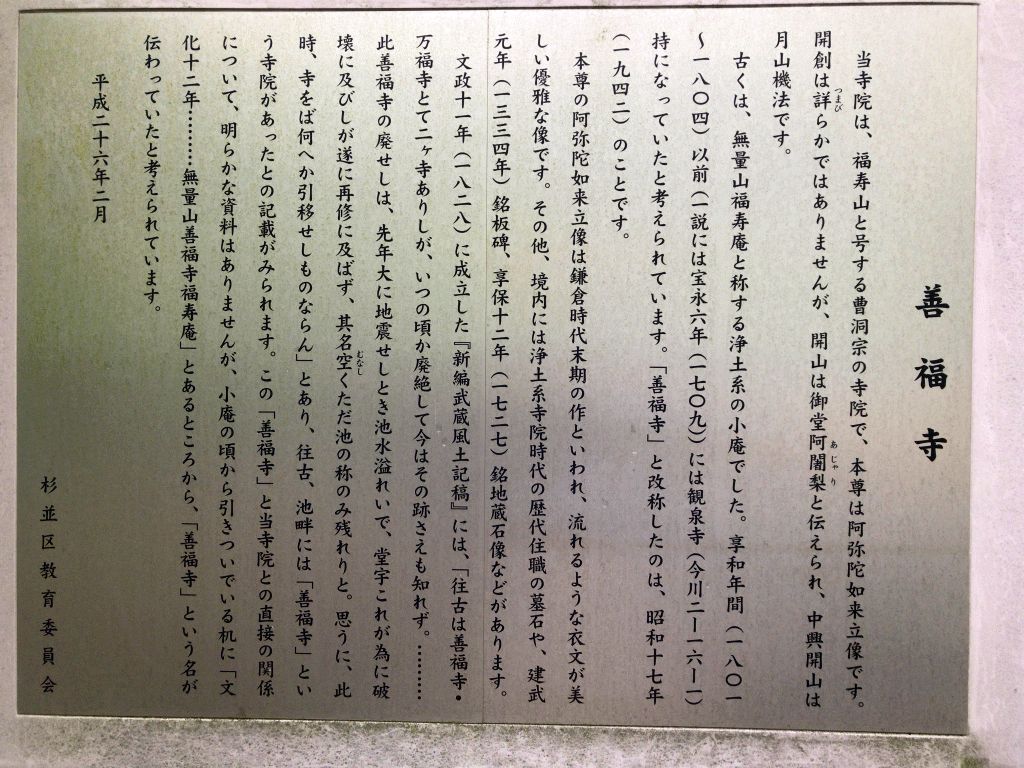 善福寺
当寺院は、福寿山と号する曹洞宗の寺院で、本尊は阿弥陀如来立像です。
開創は詳らかではありませんが、開山は御堂阿闍梨と伝えられ、中興開山は
月山機法です。
古くは、無量山福寿庵と称する浄土系の小庵でした。享和年間（一八〇一
～一八〇四）以前（一説には宝永六年（一七〇九））には観泉寺（今川二ー一六ー一）
持になっていたと考えられています。「善福寺」と改称したのは、昭和十七年
（一九四二）のことです。
本尊の阿弥陀如来立像は鎌倉時代末期の作といわれ、流れるような衣文が美
しい優雅な像です。その他、境内には浄土系寺院時代の歴代住職の墓石や、建武
元年（一三三四年）銘板碑、享保十二年（一七二七）銘地蔵石像などがあります。
文政十一年（一八二八）に成立した『新編武蔵風土記稿』には、「往古は善福寺・
万福寺とて二ヶ寺ありしが、いつの頃か廃絶して今はその跡さえも知れず。…………
此善福寺の廃せしは、先年大に地震せしとき池水溢れいで、堂宇これが為に破
壊に及びしが遂に再修に及ばず、其名空くただ池の称のみ残れりと。思うに、此
時、寺をば何へか引移せしものならん」とあり、往古、池畔には「善福寺」とい
う寺院があったとの記載がみられます。この「善福寺」と当寺院との直接の関係
について、明らかな資料はありませんが、小庵の頃から引きついでいる机に「文
化十二年…………無量山善福寺福寿庵」とあるところから、「善福寺」という名が
伝わっていたと考えられています。
平成二十六年二月
杉並区教育委員会